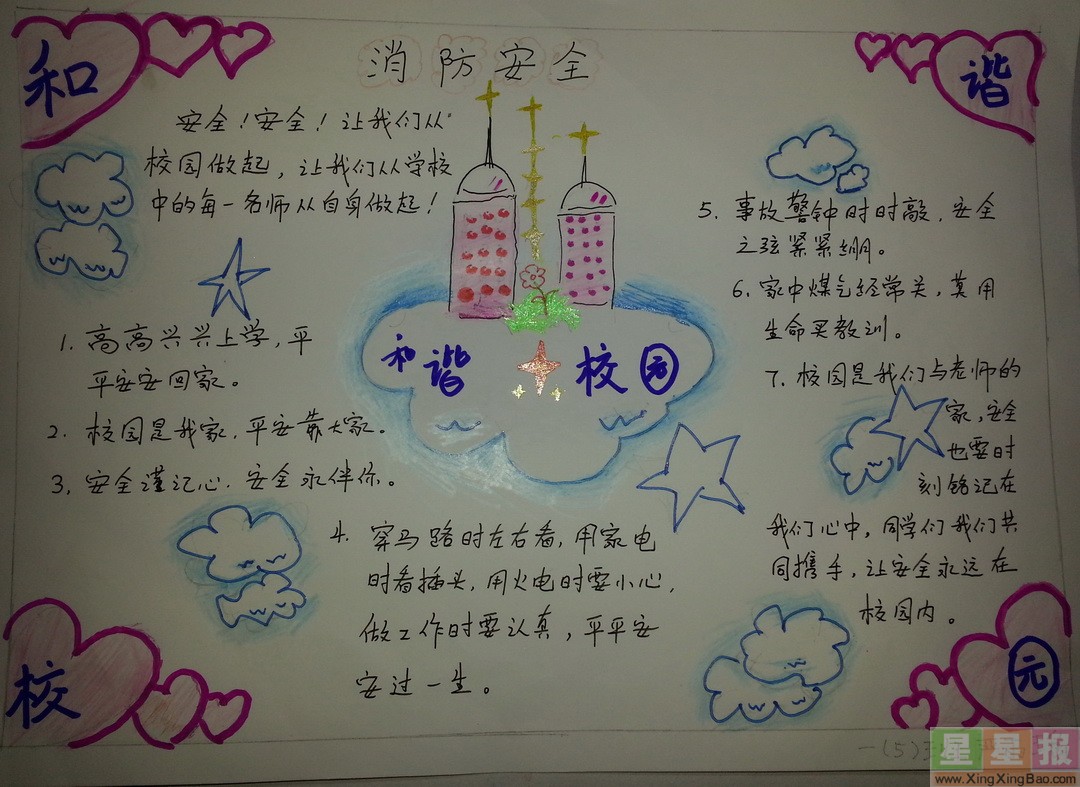 和
谐
消防安全
安全！安全！让我们从
校园做起，让我们从学校
中的每一名师从自身做起！
1. 高高兴兴上学，平
平安安回家。
2. 校园是我家，平安靠大家。
3. 安全谨记心，安全永伴你。
和谐 校园
4. 穿马路时左右看，用家电
时看插头，用火电时要小心，
做工作时要认真，平平安
安过一生。
5. 事故警钟时时敲，安全
之弦紧紧绷。
6. 家中煤气经常关，莫用
生命买教训。
7. 校园是我们与老师的
家，安全
也要时
刻铭记在
我们心中，同学们我们共
同携手，让安全永远在
校园内。
校
元
一(5)
星星报
www.XingXingBao.com